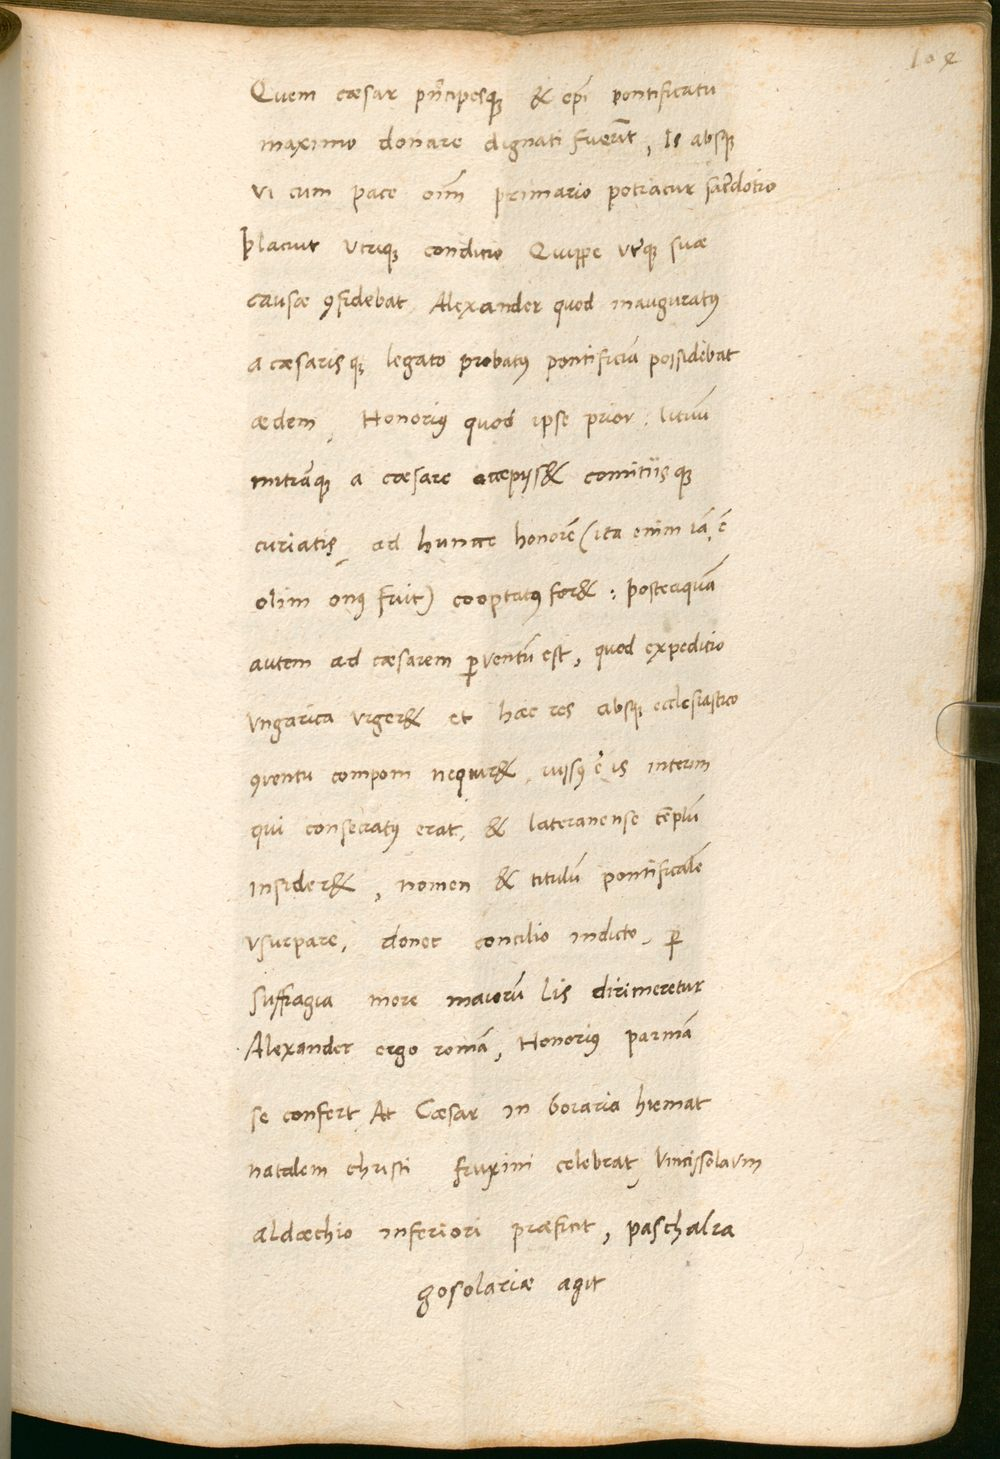 102
Quem cæsar pñcipesqꝫ & ep̃i pontificatu
maximo donare dignati fuerĩt, Is absqꝫ
vi cum pace oĩm primario potiatur sac̃dotio
placuit utriqꝫ conditio Quippe utʳqꝫ suæ
causæ ꝯfidebat Alexander quod inauguratꝰ
a cæsarisqꝫ legato probatꝰ pontificiũ possidebat
ædem, Honoriꝰ quod ipse prior, lituũ
mitrãqꝫ a cæsare accepiss& comitiisqꝫ
curiatis, ad hunce honorẽ (ita enim iã ẽ
olim onꝰ fuit) cooptatꝰ for& : posteaquã
autem ad cæsarem ꝑventũ est, quod expeditio
Vngarica urger& et hæc res absqꝫ ecclesiastico
ꝯventu componi nequir&, iussꝰ ẽ is interim
qui consecratꝰ erat, & lateranense tẽplũ
insider&, nomen & titulũ pontificalẽ
usurpare, donec concilio indicto, ꝑ
suffragia more maiorũ lis dirimeretur
Alexander ergo romã, Honoriꝰ parmã
se confert At Cæsar in boiaria hiemat
natalem christi fruxini celebrat Vincissolaum
aldæchio inferiori præficit, paschalia
gosolariæ agit